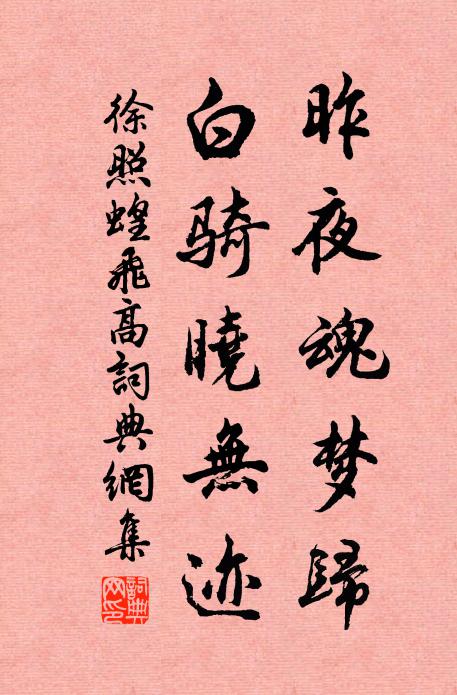 昨夜魂梦歸
白骑曉無迹
徐照蝗飛高詞典網集
詞典网印